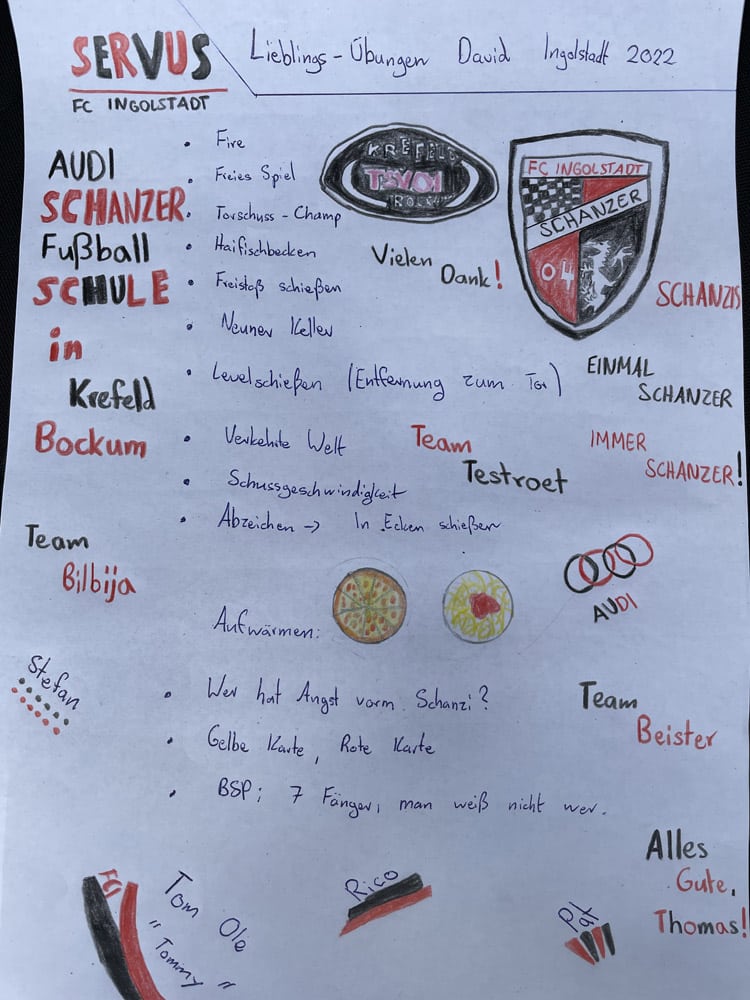 SERVUS
FC INGOLSTADT
Lieblings-Übungen David Ingolstadt 2022
AUDI
SCHANZER
Fußball
SCHULE
in
Krefeld
Bockum
• Fire
• Freies Spiel
• Torschuss-Champ
• Haifischbecken
• Freistoß schießen
• Neuner Keller
• Levelschießen (Entfernung zum Tor)
• Verkehrte Welt
• Schussgeschwindigkeit
• Abzeichen -> In Ecken schießen
KREFELD
TSV
BOCKUM
Vielen
Dank!
FC INGOLSTADT
SCHANZER
04
SCHANZIS
EINMAL
SCHANZER
IMMER
SCHANZER!
Team
Testroet
Team
Bilbija
AUDI
Aufwärmen:
• Wer hat Angst vorm Schanzi?
• Gelbe Karte, Rote Karte
• BSP: 7 Fänger, man weiß nicht wer.
Stefan
Team
Beister
Alles
Gute,
Thomas!
FCI
Tom Ole
"Tommy"
Rico
Pat